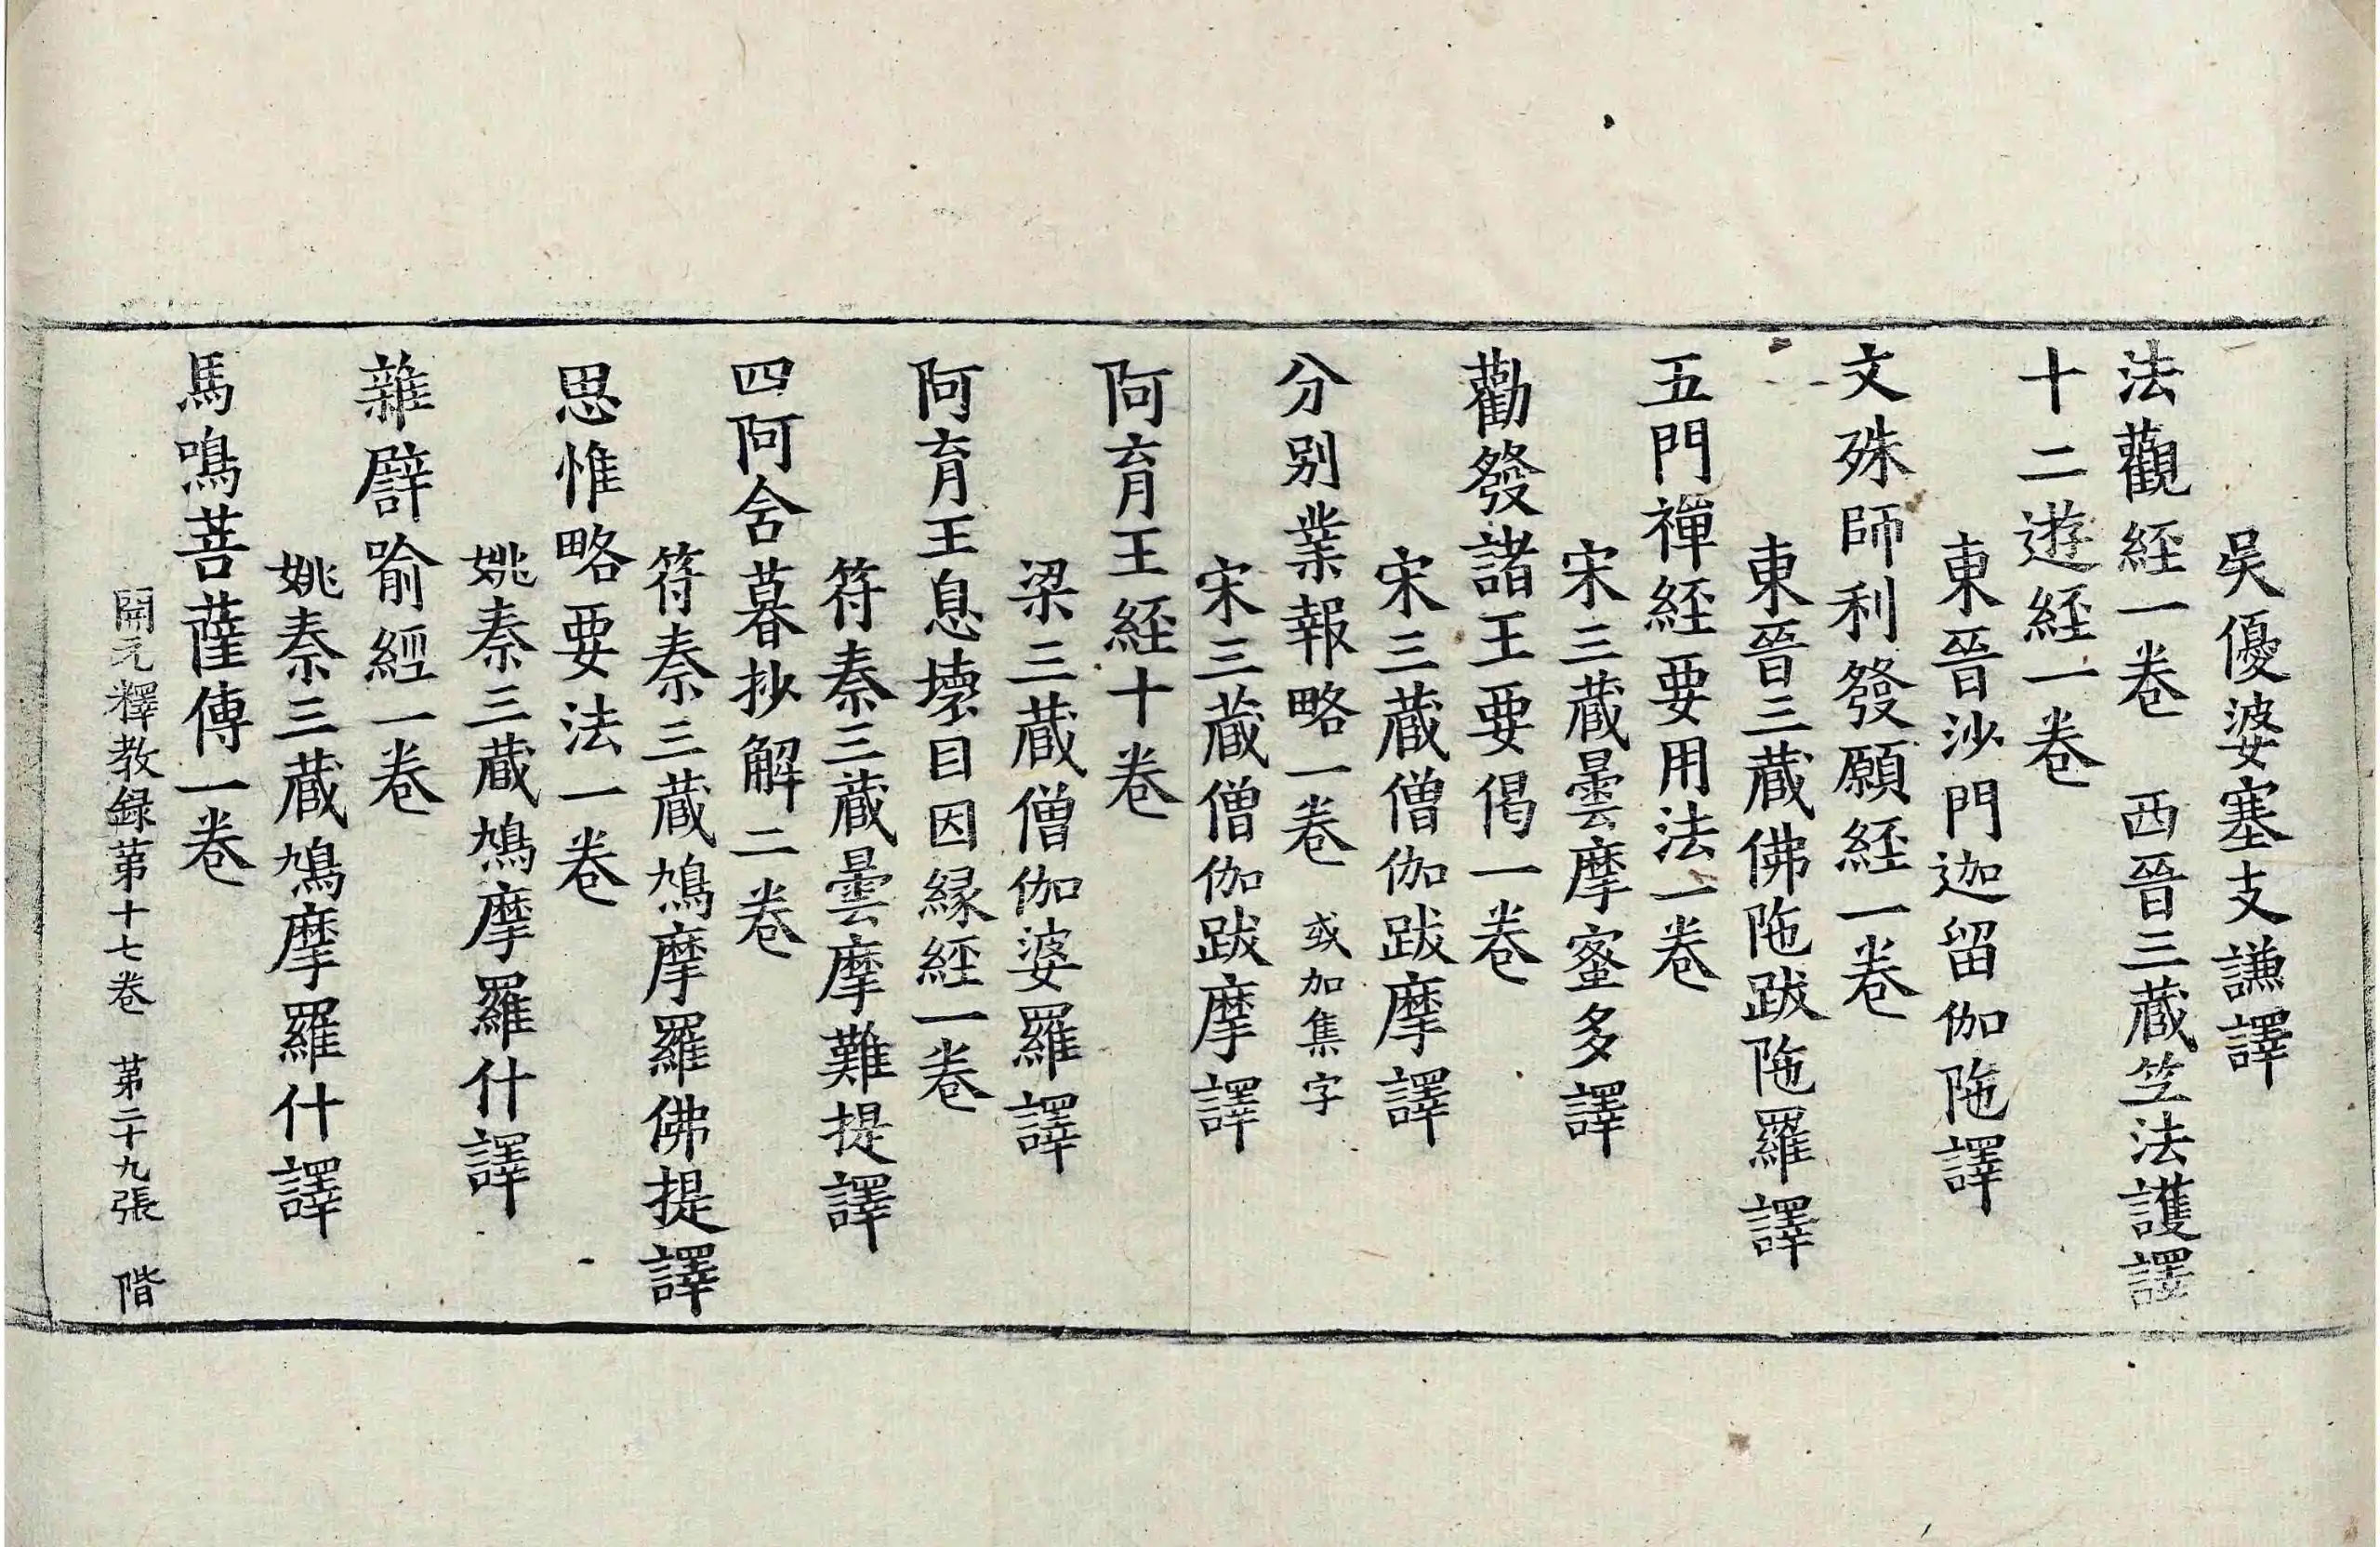 吳優婆塞支謙譯
法觀經一卷　西晉三藏竺法護譯
十二遊經一卷
東晉沙門迦留伽陁譯
文殊師利發願經一卷
東晉三藏佛陁跋陁羅譯
五門禪經要用法一卷
宋三藏曇摩蜜多譯
勸發諸王要偈一卷
宋三藏僧伽跋摩譯
分別業報略一卷　或加集字
宋三藏僧伽跋摩譯
阿育王經十卷
梁三藏僧伽婆羅譯
阿育王息壞目因緣經一卷
符秦三藏曇摩難提譯
四阿含暮抄解二卷
符秦三藏鳩摩羅佛提譯
思惟略要法一卷
姚秦三藏鳩摩羅什譯
雜譬喻經一卷
姚秦三藏鳩摩羅什譯
馬鳴菩薩傳一卷
開元釋教録苐十七卷　苐二十九張　階